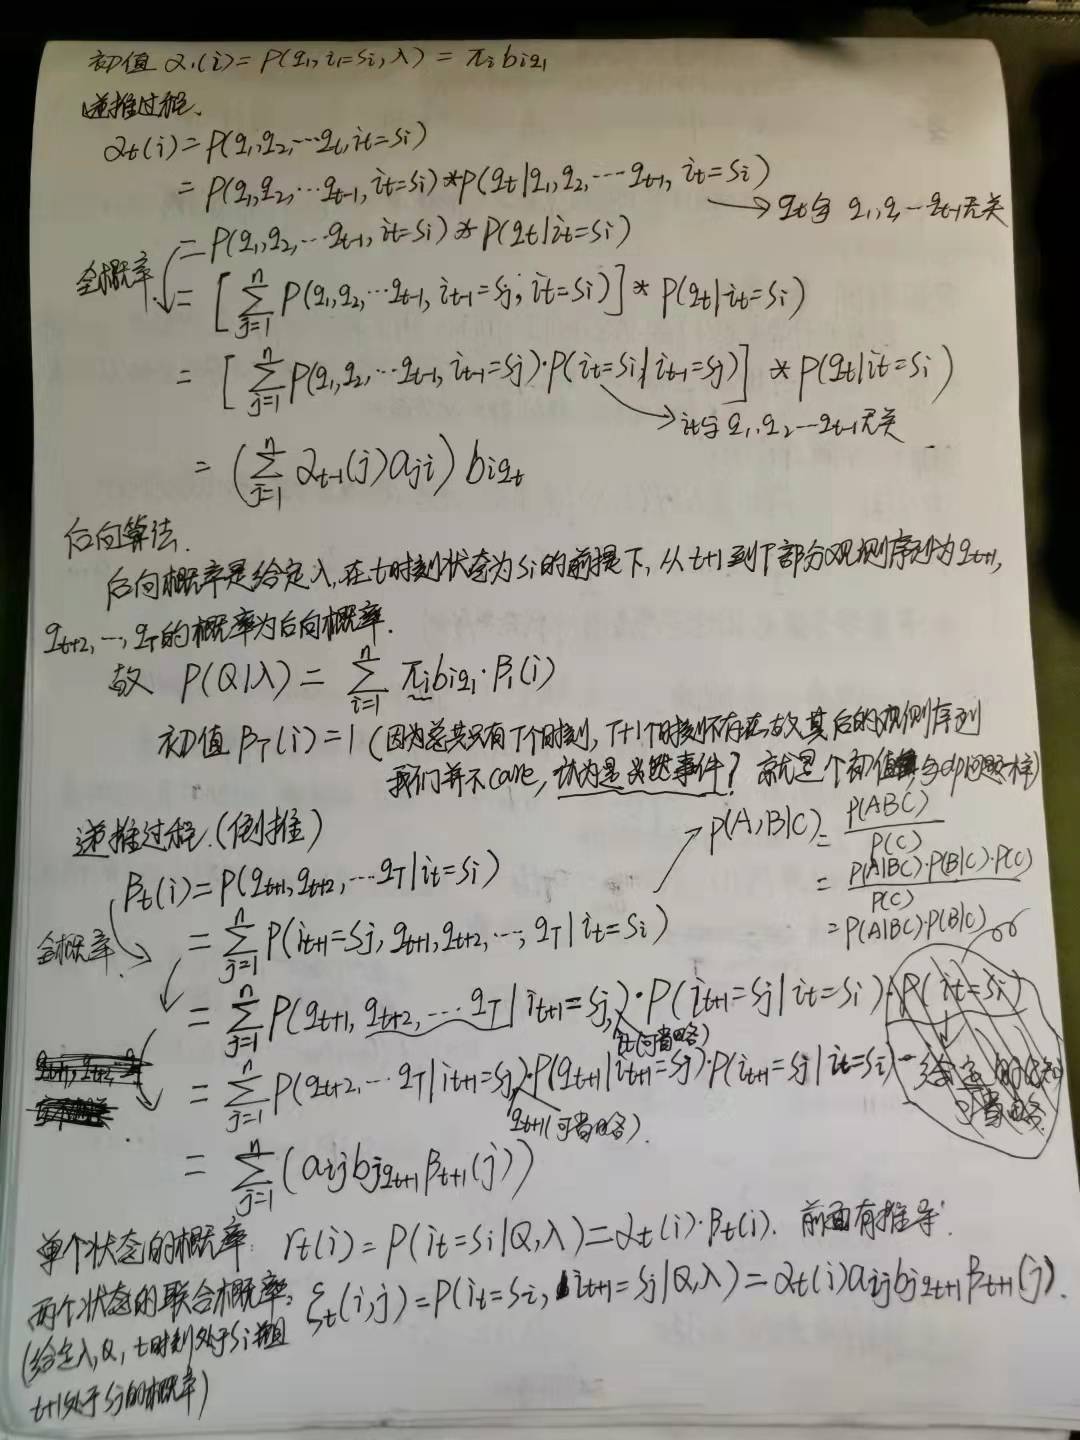 初值 α₁(i)=P(q₁, i₁=Si, λ) = πi biq₁
递推过程.
αt(i)=P(q₁,q₂,…qt, it=Si)
=P(q₁,q₂,…qt-1, it=Si)*P(qt|q₁,q₂,…qt-1, it=Si)
→ qt与 q₁,q…qt-1无关
=P(q₁,q₂,…qt-1, it=Si)*P(qt|it=Si)
全概率
= [∑ⁿj=1 P(q₁,q₂,…qt-1, it-1=Sj, it=Si)] * P(qt|it=Si)
= [∑ⁿj=1 P(q₁,q₂,…qt-1, it-1=Sj)·P(it=Si|it-1=Sj)] * P(qt|it=Si)
→ it与 q₁,q₂…qt-1无关
= (∑ⁿj=1 αt-1(j)aji) biqt
后向算法.
后向概率是给定λ,在t时刻状态为Si的前提下,从t+1到T部分观测序列为qt+1,
qt+2,…,qT的概率为后向概率.
故 P(Q|λ) = ∑ⁿi=1 πi biq₁·β₁(i)
初值 βT(i)=1 (因为总共只有T个时刻,T+1个时刻不存在,故其后的观测序列
我们并不care,认为是必然事件? 就是个初值 与dp问题一样)
递推过程.(倒推)
→ P(A,B|C) = P(ABC)/P(C)
= P(A|BC)·P(B|C)·P(C)/P(C)
= P(A|BC)·P(B|C)
βt(i)=P(qt+1,qt+2,…qT|it=Si)
全概率.
= ∑ⁿj=1 P(it+1=Sj, qt+1,qt+2,…,qT|it=Si)
= ∑ⁿj=1 P(qt+1,qt+2,…qT|it+1=Sj,)·P(it+1=Sj|it=Si)·P(it=Si)
it(可省略)
= ∑ⁿj=1 P(qt+2,…qT|it+1=Sj,)·P(qt+1|it+1=Sj)·P(it+1=Sj|it=Si)
qt+1(可省略).
给定 的
可省略.
= ∑ⁿj=1 (aij bjqt+1 βt+1(j))
单个状态的概率: γt(i)=P(it=Si|Q,λ)=αt(i)·βt(i). 前面有推导.
两个状态的联合概率: ξt(i,j)=P(it=Si, it+1=Sj|Q,λ)=αt(i)aij bjqt+1 βt+1(j).
(给定λ,Q, t时刻处于Si 且
t+1处于Sj的概率)